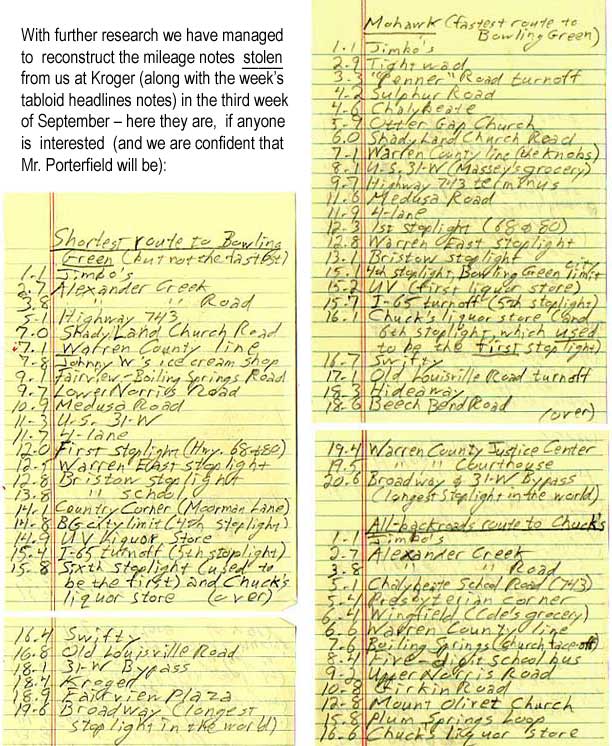 With further research we have managed
to reconstruct the mileage notes stolen
from us at Kroger (along with the week's
tabloid headlines notes) in the third week
of September – here they are, if anyone
is interested (and we are confident that
Mr. Porterfield will be):
Shortest route to Bowling
Green (but not the fastest)
1.1 Jimbo's
2.7 Alexander Creek
3.8 " " Road
5.1 Highway 743
7.0 Shady Land Church Road
7.1 Warren County line
7.8 Johnny W's ice cream shop
9.1 Fairview-Boiling Springs Road
9.7 Lower Norris Road
10.9 Medusa Road
11.3 U.S. 31-W
11.7 4-lane
12.0 First stoplight (Hwy. 68 & 80)
12.5 Warren East stoplight
12.8 Bristow stoplight
13.8 " school
14.1 Country Corner (Moorman Lane)
14.8 BG city limit (4th stoplight)
14.9 UV Liquor Store
15.4 I-65 turnoff (5th stoplight)
15.8 Sixth stoplight (used to
be the first) and Chuck's
liquor store (over)
16.4 Swifty
16.8 Old Louisville Road
18.1 31-W Bypass
18.4 Kroger
18.9 Fairview Plaza
19.6 Broadway (longest
stoplight in the world)
Mohawk (fastest route to
Bowling Green)
1.1 Jimbo's
2.9 Tightwad
3.3 "Penner" Road turnoff
4.2 Sulphur Road
4.6 Chalybeate
5.9 Otter Gap Church
6.0 Shady Land Church Road
7.1 Warren County line (the Knobs)
8.1 U.S. 31-W (Massey's grocery)
9.7 Highway 743 terminus
11.6 Medusa Road
11.9 4-lane
12.3 1st stoplight (68 & 80)
12.8 Warren East stoplight
13.1 Bristow stoplight
15.1 4th stoplight, Bowling Green city limit
15.2 UV (first liquor store)
15.7 I-65 turnoff (5th stoplight)
16.1 Chuck's liquor store (and
6th stoplight, which used
to be the first stop light)
16.7 Swifty
17.1 Old Louisville Road turnoff
18.3 Hideaway
18.6 Beech Bend Road
(over)
19.4 Warren County Justice Center
19.5 " " Courthouse
20.6 Broadway & 31-W Bypass
(longest stoplight in the world)
All-backroads route to Chuck's
1.1 Jimbo's
2.7 Alexander Creek
3.8 " " Road
5.1 Chalybeate School Road (743)
5.4 Presbyterian corner
6.4 Wingfield (Cole's grocery)
6.6 Warren County line
7.6 Boiling Springs (church face-off)
8.4 Five-digit school bus
9.2 Upper Norris Road
10.8 Girkin Road
12.8 Mount Olivet Church
15.8 Plum Springs Loop
16.6 Chuck's liquor store